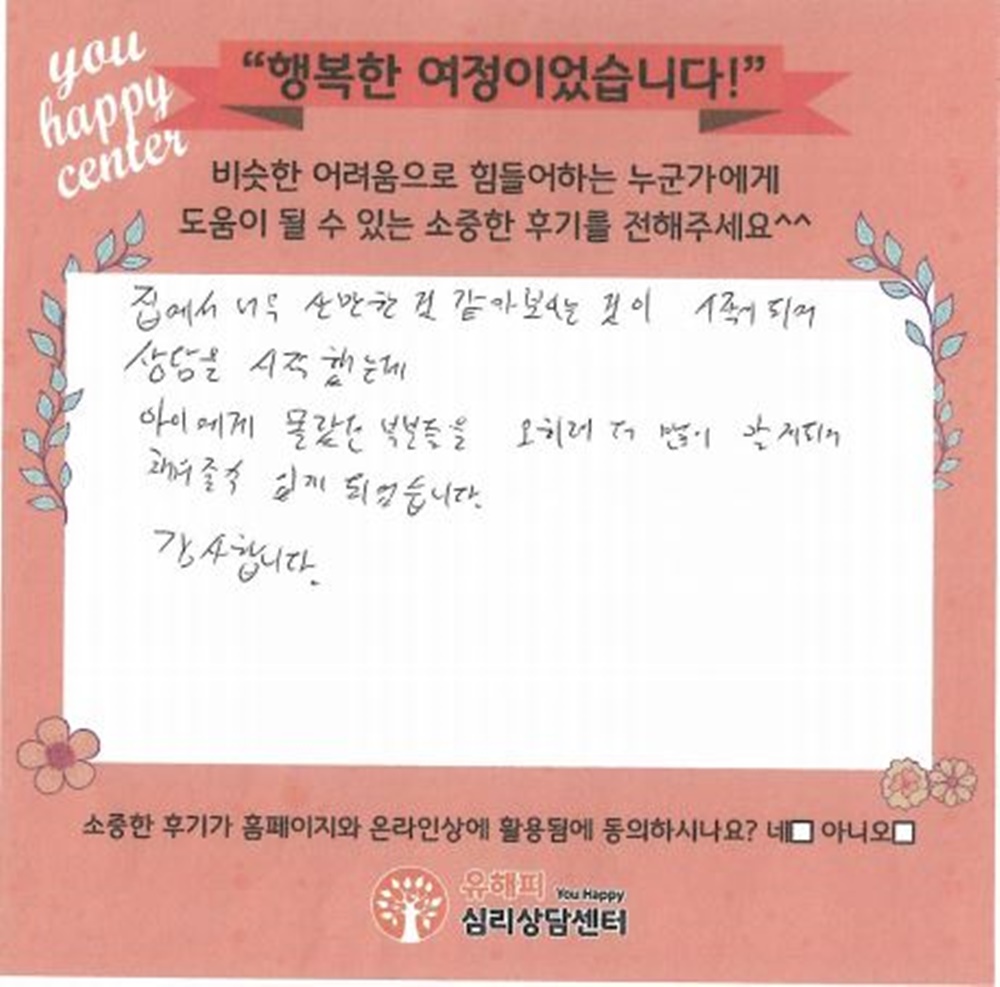 you
happy
center
“행복한 여정이었습니다!”
비슷한 어려움으로 힘들어하는 누군가에게
도움이 될 수 있는 소중한 후기를 전해주세요^^
집에서 너무 산만한 것 같아 보는 것이 시작이 되어
상담을 시작했는데
아이에게 몰랐던 부분들을 오히려 더 많이 알게되어
채워줄수 있게 되었습니다.
감사합니다.
소중한 후기가 홈페이지와 온라인상에 활용됨에 동의하시나요? 네□ 아니오□
유해피 You Happy
심리상담센터